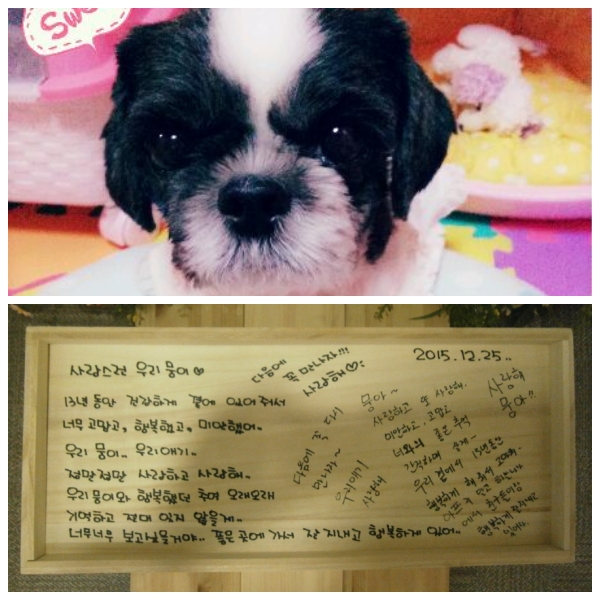 Swe
사랑스런 우리 뭉이♡
13년 동안 건강하게 곁에 있어 주어서
너무 고맙고, 행복했고, 미안했어..
우리 뭉이.. 우리 애기..
정말정말 사랑하고 사랑해..
우리 뭉이와 행복했던 추억 오래오래
기억하고 절대 잊지 않을게..
너무너무 보고싶을거야.. 좋은 곳에 가서 잘 지내고 행복하게 있어..
다음에
꼭 만나자!!!
사랑해♡
2015.12.25..
다음에 꼭 다시
만나자~
우리애기
사랑해
뭉아~
사랑하고 또 사랑해.
미안하고.. 고맙고
너와의 좋은 추억
간직하며 살게~
우리 곁에서 13년동안
행복하게 해 줘서 고마워.
아프지 말고 하늘나라
에서 친구들이랑
행복하게 지내고
있어라.
사랑해
뭉아!!